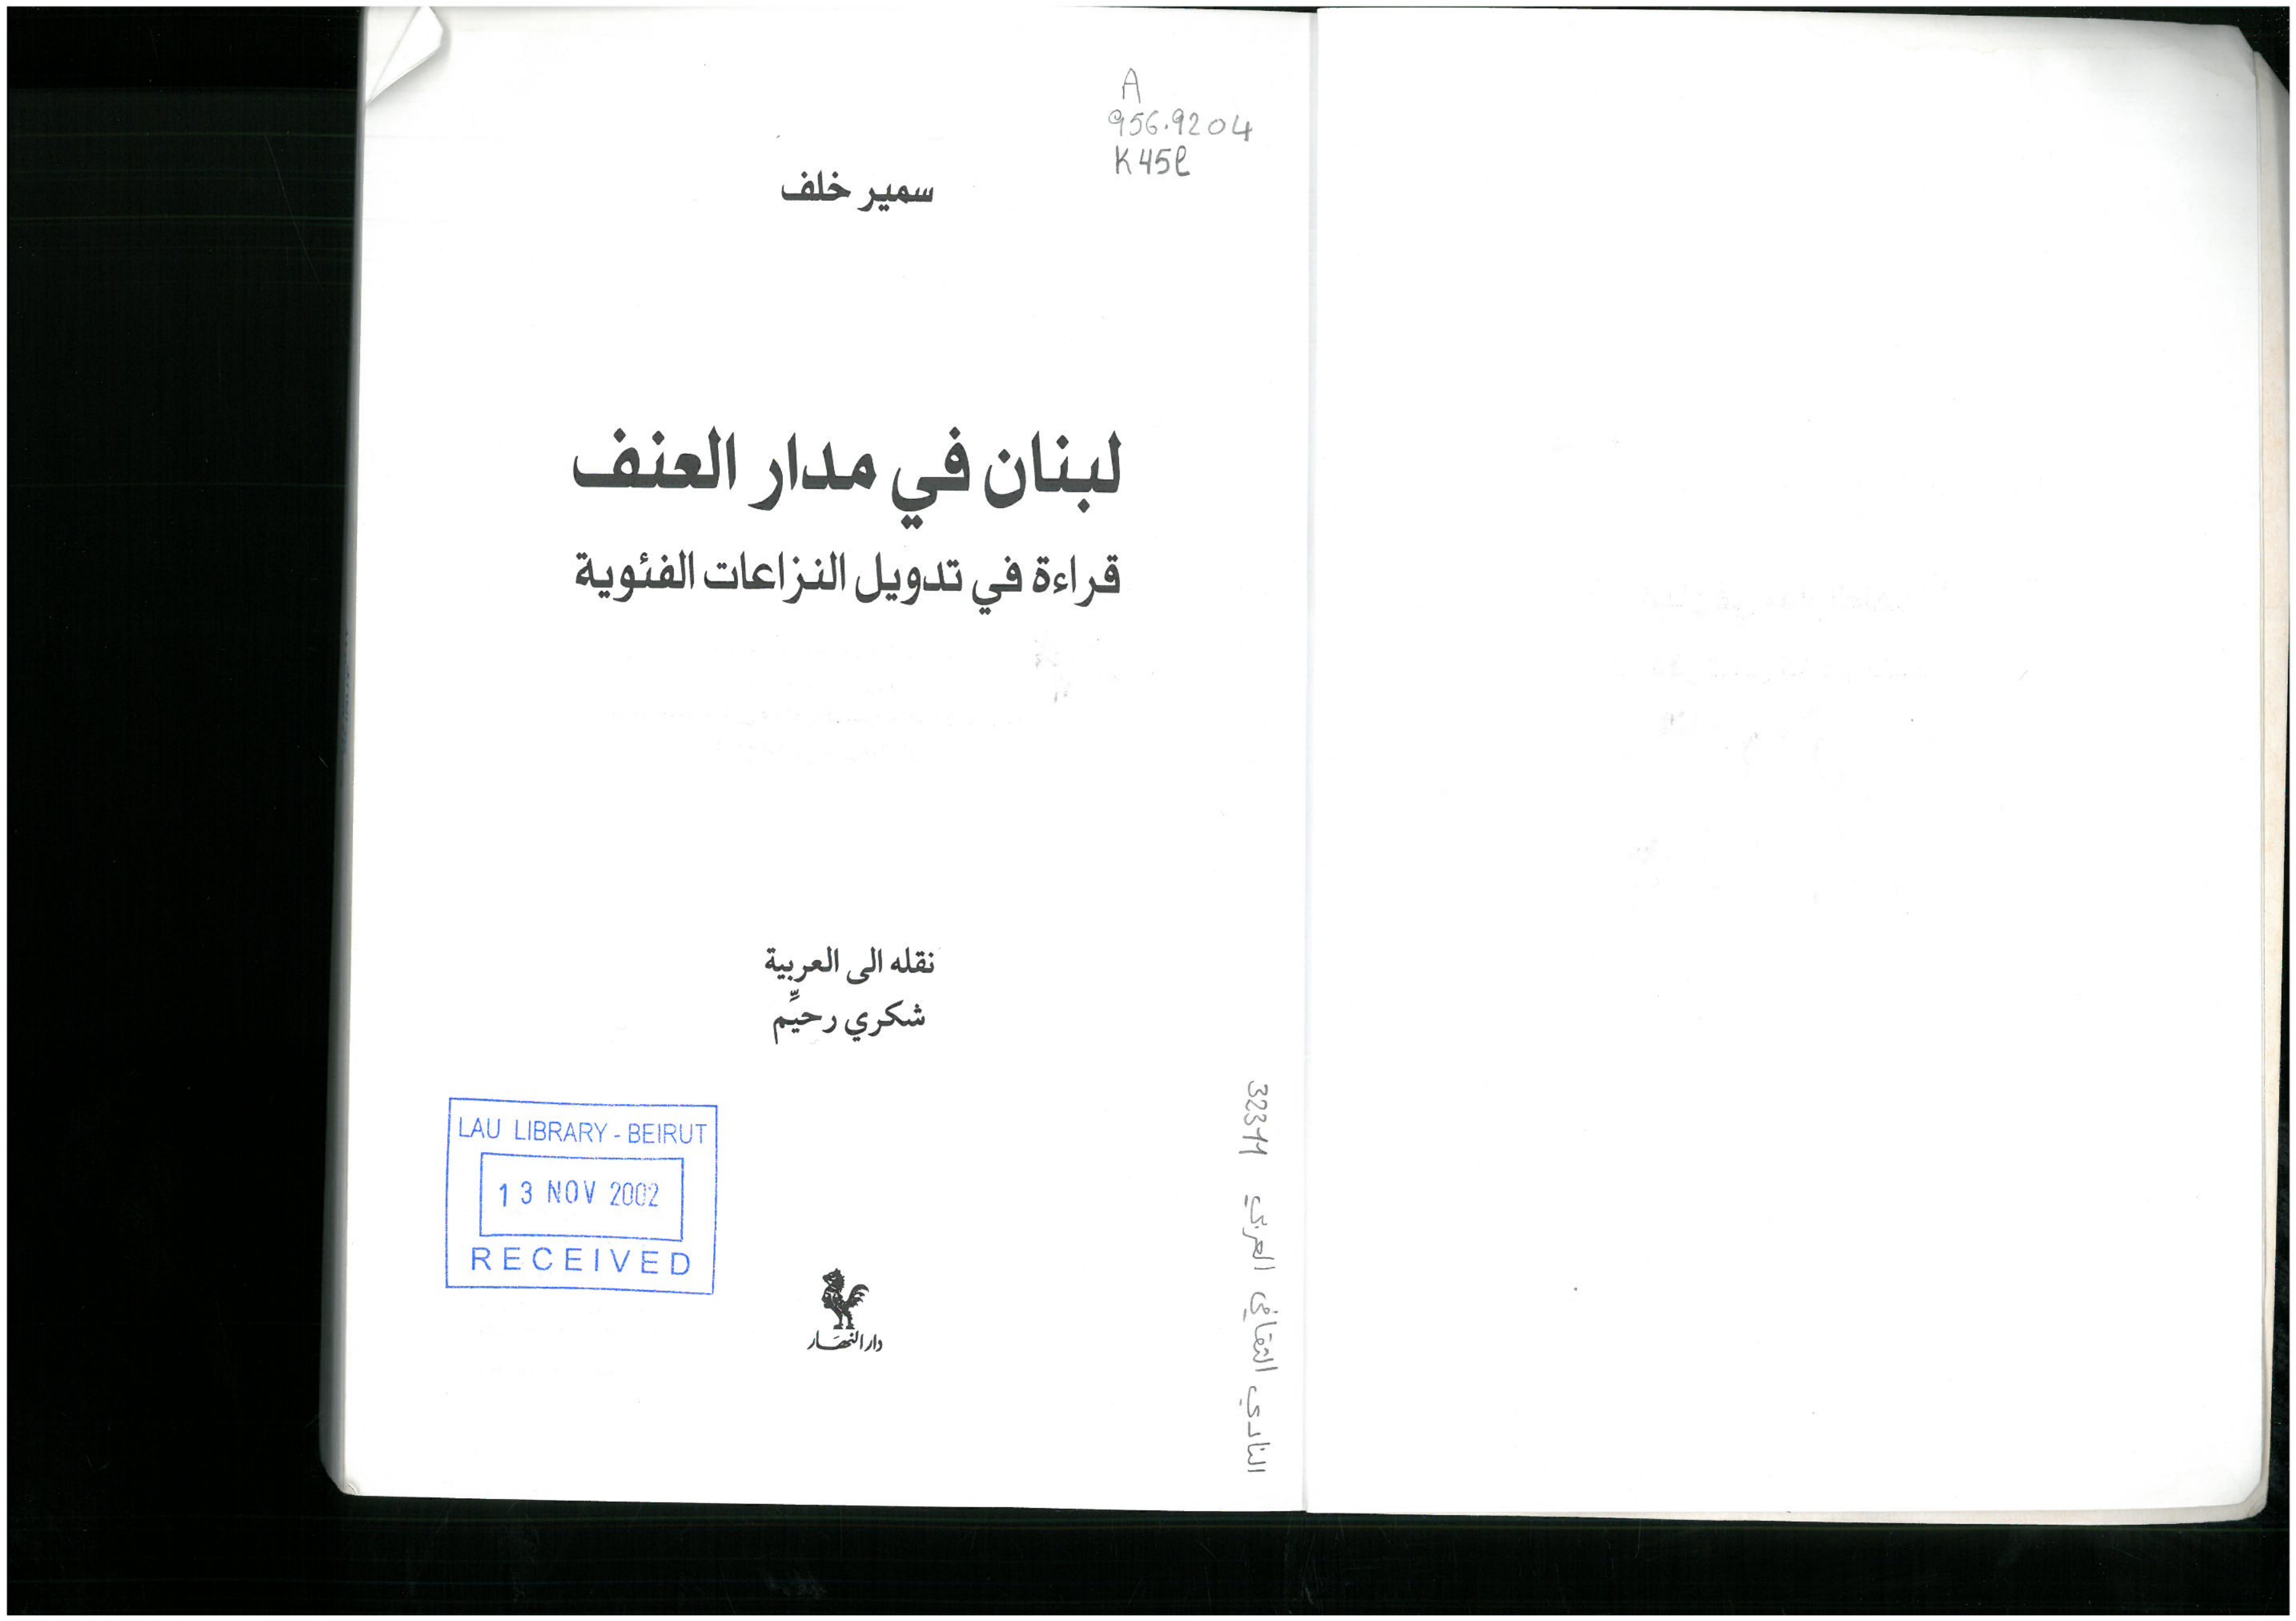 A
956.9204
K45l
سمير خلف
لبنان في مدار العنف
قراءة في تدويل النزاعات الفئوية
نقله الى العربية
شكري رحيِّم
LAU LIBRARY - BEIRUT
13 NOV 2002
RECEIVED
دار النهار
النادي الثقافي العربي 32311